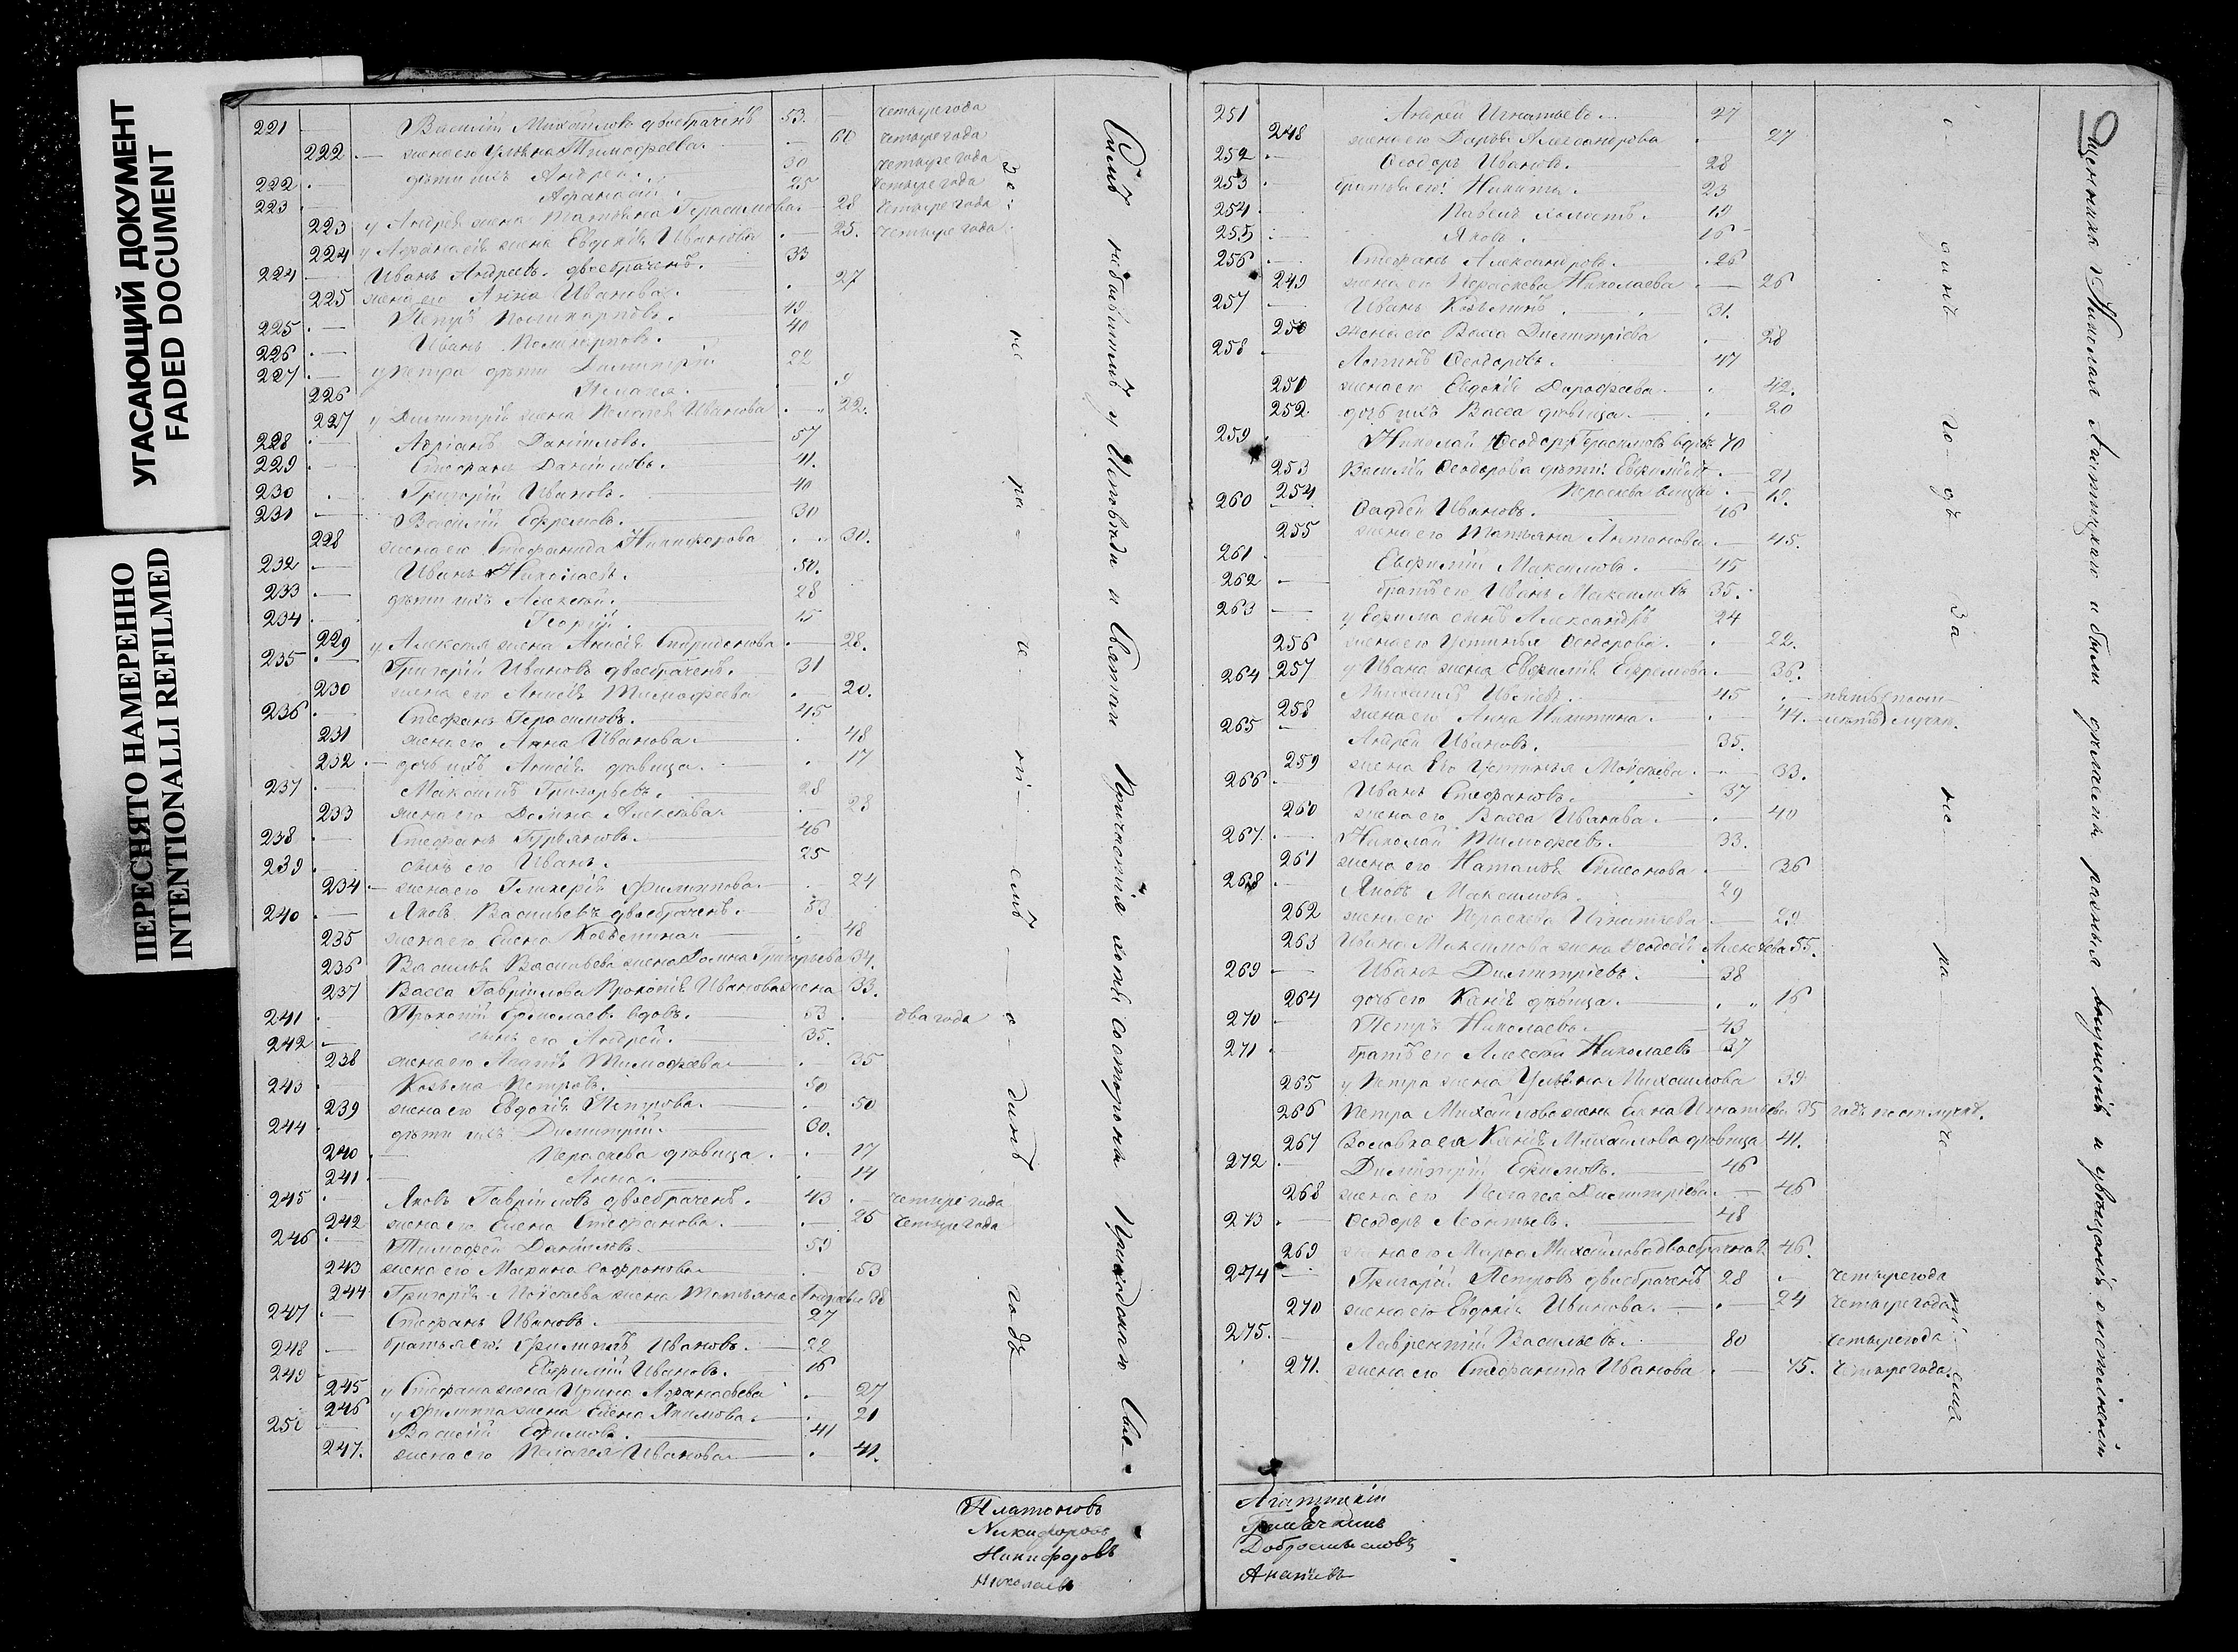 УГАСАЮЩИЙ ДОКУМЕНТ
FADED DOCUMENT
ПЕРЕСНЯТО НАМЕРЕННО
INTENTIONALLI REFILMED
221 — Василій Михайловъ двоебраченъ 53. четыре года
222 — жена его Ульяна Тимофеева 60 четыре года
222 — дѣти ихъ Андрей 30 четыре года
223 — Афанасій 25 четыре года
223 у Андрея жена Татьяна Герасимова 28 четыре года
224 у Афанасія жена Евдокія Иванова 25. четыре года
224 — Иванъ Андреевъ двоебраченъ. 33
225 жена его Анна Иванова 27
225 — Петръ Поликарповъ. 49
226 — Иванъ Поликарповъ. 40
227 — у Петра дѣти Димитрій 22
226 Пелагея
227 у Димитрія жена Пелагея Иванова 22.
228 — Адріанъ Даніиловъ. 57
229 — Стефанъ Даніиловъ. 41.
230 — Григорій Ивановъ. 40
231 — Василій Ефремовъ. 30
228 жена его Стефанида Никифорова 30.
232 — Иванъ Николаевъ. 50.
233 — дѣти ихъ Алексѣй 28
234 Георгій 15
229 у Алексѣя жена Анисія Спиридонова 28.
235 — Григорій Ивановъ двоебраченъ. 31
230 жена его Анисія Тимофеева 20.
236 — Стефанъ Герасимовъ. 45
231 жена его Анна Иванова 48
232 — дочь ихъ Анисія дѣвица 17
237 — Максимъ Григорьевъ. 28
233 жена его Домна Алексѣева 28
238 — Стефанъ 46
239 сынъ его Иванъ. 25
234 — жена его Гликерія Филиппова 24
240 — Яковъ Васильевъ двоебраченъ. 53
235 жена его Елена Козьмина 48
236 Василья Васильева жена Домна Григорьева 34.
237 Васса Гавріилова Прокопія Иванова жена 33.
241 — Прокопій Ермолаевъ вдовъ. 63 два года
242 — сынъ его Андрей. 35.
238 жена его Агафія Тимофеева 35
243 Козьма Петровъ. 50
239 жена его Евдокія Петрова 50
244 дѣти ихъ Димитрій 30.
240 — Параскева дѣвица 17
241 — Анна 14
245 — Яковъ Гавріиловъ двоебраченъ. 43 четыре года
242 жена его Елена Стефанова 26 четыре года
246 — Тимофей Даніиловъ 59
243 жена его Марина Софронова 53
244 Григорія Моисеева жена Татьяна Андреева 38
247 — Стефанъ Ивановъ. 27
248 — братья его: Филиппъ Ивановъ. 22
249 Евфимій Ивановъ. 16
245 у Стефана жена Ирина Афанасьева 27
246 у Филиппа жена Елена Якимова 21
250 — Василій Ефимовъ. 41
247. жена его Пелагея Иванова 41.
Симъ не бывшимъ у Исповѣди и Святаго Причастія хотѣ со стороны Приходскаго Свя-
Платоновъ
Никифоровъ
Никифоровъ
Николаевъ
9
251 — Андрей Игнатьевъ 27
248 жена его Дарья Александрова 27
252 — Ѳеодоръ Ивановъ. 28
253 братья его: Никита. 23
254 Павелъ холостъ. 19
255 — Яковъ. 16
256 — Стефанъ Александровъ. 26
249 жена его Параскева Николаева 26
257 — Иванъ Козьминъ. 31.
250 жена его Васса Димитріева 28
258 — Логинъ Ѳеодоровъ. 47
251 жена его Евдокія Дорофеева 42.
252 дочь ихъ Васса дѣвица 20
259 Николай Герасимовъ вдовъ 70
253 Василія Ѳеодорова дѣти: Евфимія 21
254 Параскева 19.
260 Фаддей Ивановъ. 46
255 жена его Татьяна Антонова 45.
261 Евфимій Максимовъ. 45
262 — братъ его Иванъ Максимовъ 35.
263 — у Ефима сынъ Александръ 24
256 жена его Устинья Ѳеодорова 22.
257 у Ивана жена Евфимія Ефремова 36.
264 45
258 жена его Анна Никитина 44.
265 — Андрей Ивановъ. 35.
259 жена его Устинья Моисеева 33.
266 Иванъ Стефановъ. 37
260 жена его Васса Иванова 40
267. — Николай Тимофеевъ. 33.
261 жена его Наталія Симеонова 36
268 — Яковъ Максимовъ. 29
262 жена его Параскева Игнатьева 29.
263 Ивана Максимова жена Ѳеодосія Алексѣева 55.
269 — Иванъ Димитріевъ. 38
264 дочь его Ксенія дѣвица 16
270 — Петръ Николаевъ 43
271 — братъ его Алексѣй Николаевъ 37
265 у Петра жена Ульяна Михайлова 39
266 Петра Михайлова жена Елена Игнатьева 35
267 Ксенія Михайлова дѣвица 41.
272 — Димитрій Ефимовъ. 46
268 жена его Пелагея Димитріева 46
273 — Ѳеодоръ Леонтьевъ. 48
269 жена его Марѳа Михайлова двоебрачная 46.
274 — Григорій Петровъ двоебраченъ 28 четыре года
270 жена его Евдокія Иванова 24 четыре года
275. — Лаврентій Васильевъ 80 четыре года
271. жена его Стефанида Иванова 75. четыре года
щенника Николая Агатицкаго и были дѣлаемы разныя внушенія и увѣщанія
Агатицкій
Добросмысловъ
Ананьевъ